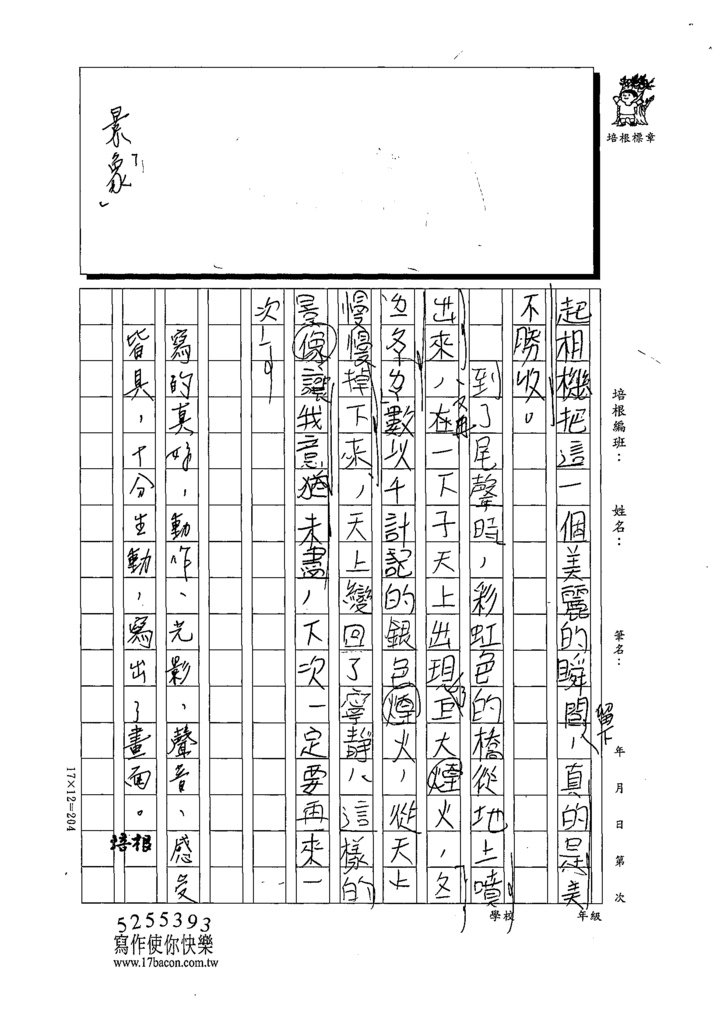 培根標章
景象
培根編班：
姓名：
筆名：
年 月 日 第 次
學校
年級
起相機把這一個美麗的瞬間，真的是美
留下
不勝收。
到了尾聲時，彩虹色的橋從地上噴
出來，在一下子天上出現巨大煙火，
又再
數以千計記的銀色煙火，從天上
慢慢掉下來，天上變回了寧靜，這樣的
景像讓我意猶未盡，下次一定要再來一
次！
寫的真好，動作、光影、聲音、感受
皆具，十分生動，寫出了畫面。
培根
17×12=204
5255393
寫作使你快樂
www.17bacon.com.tw